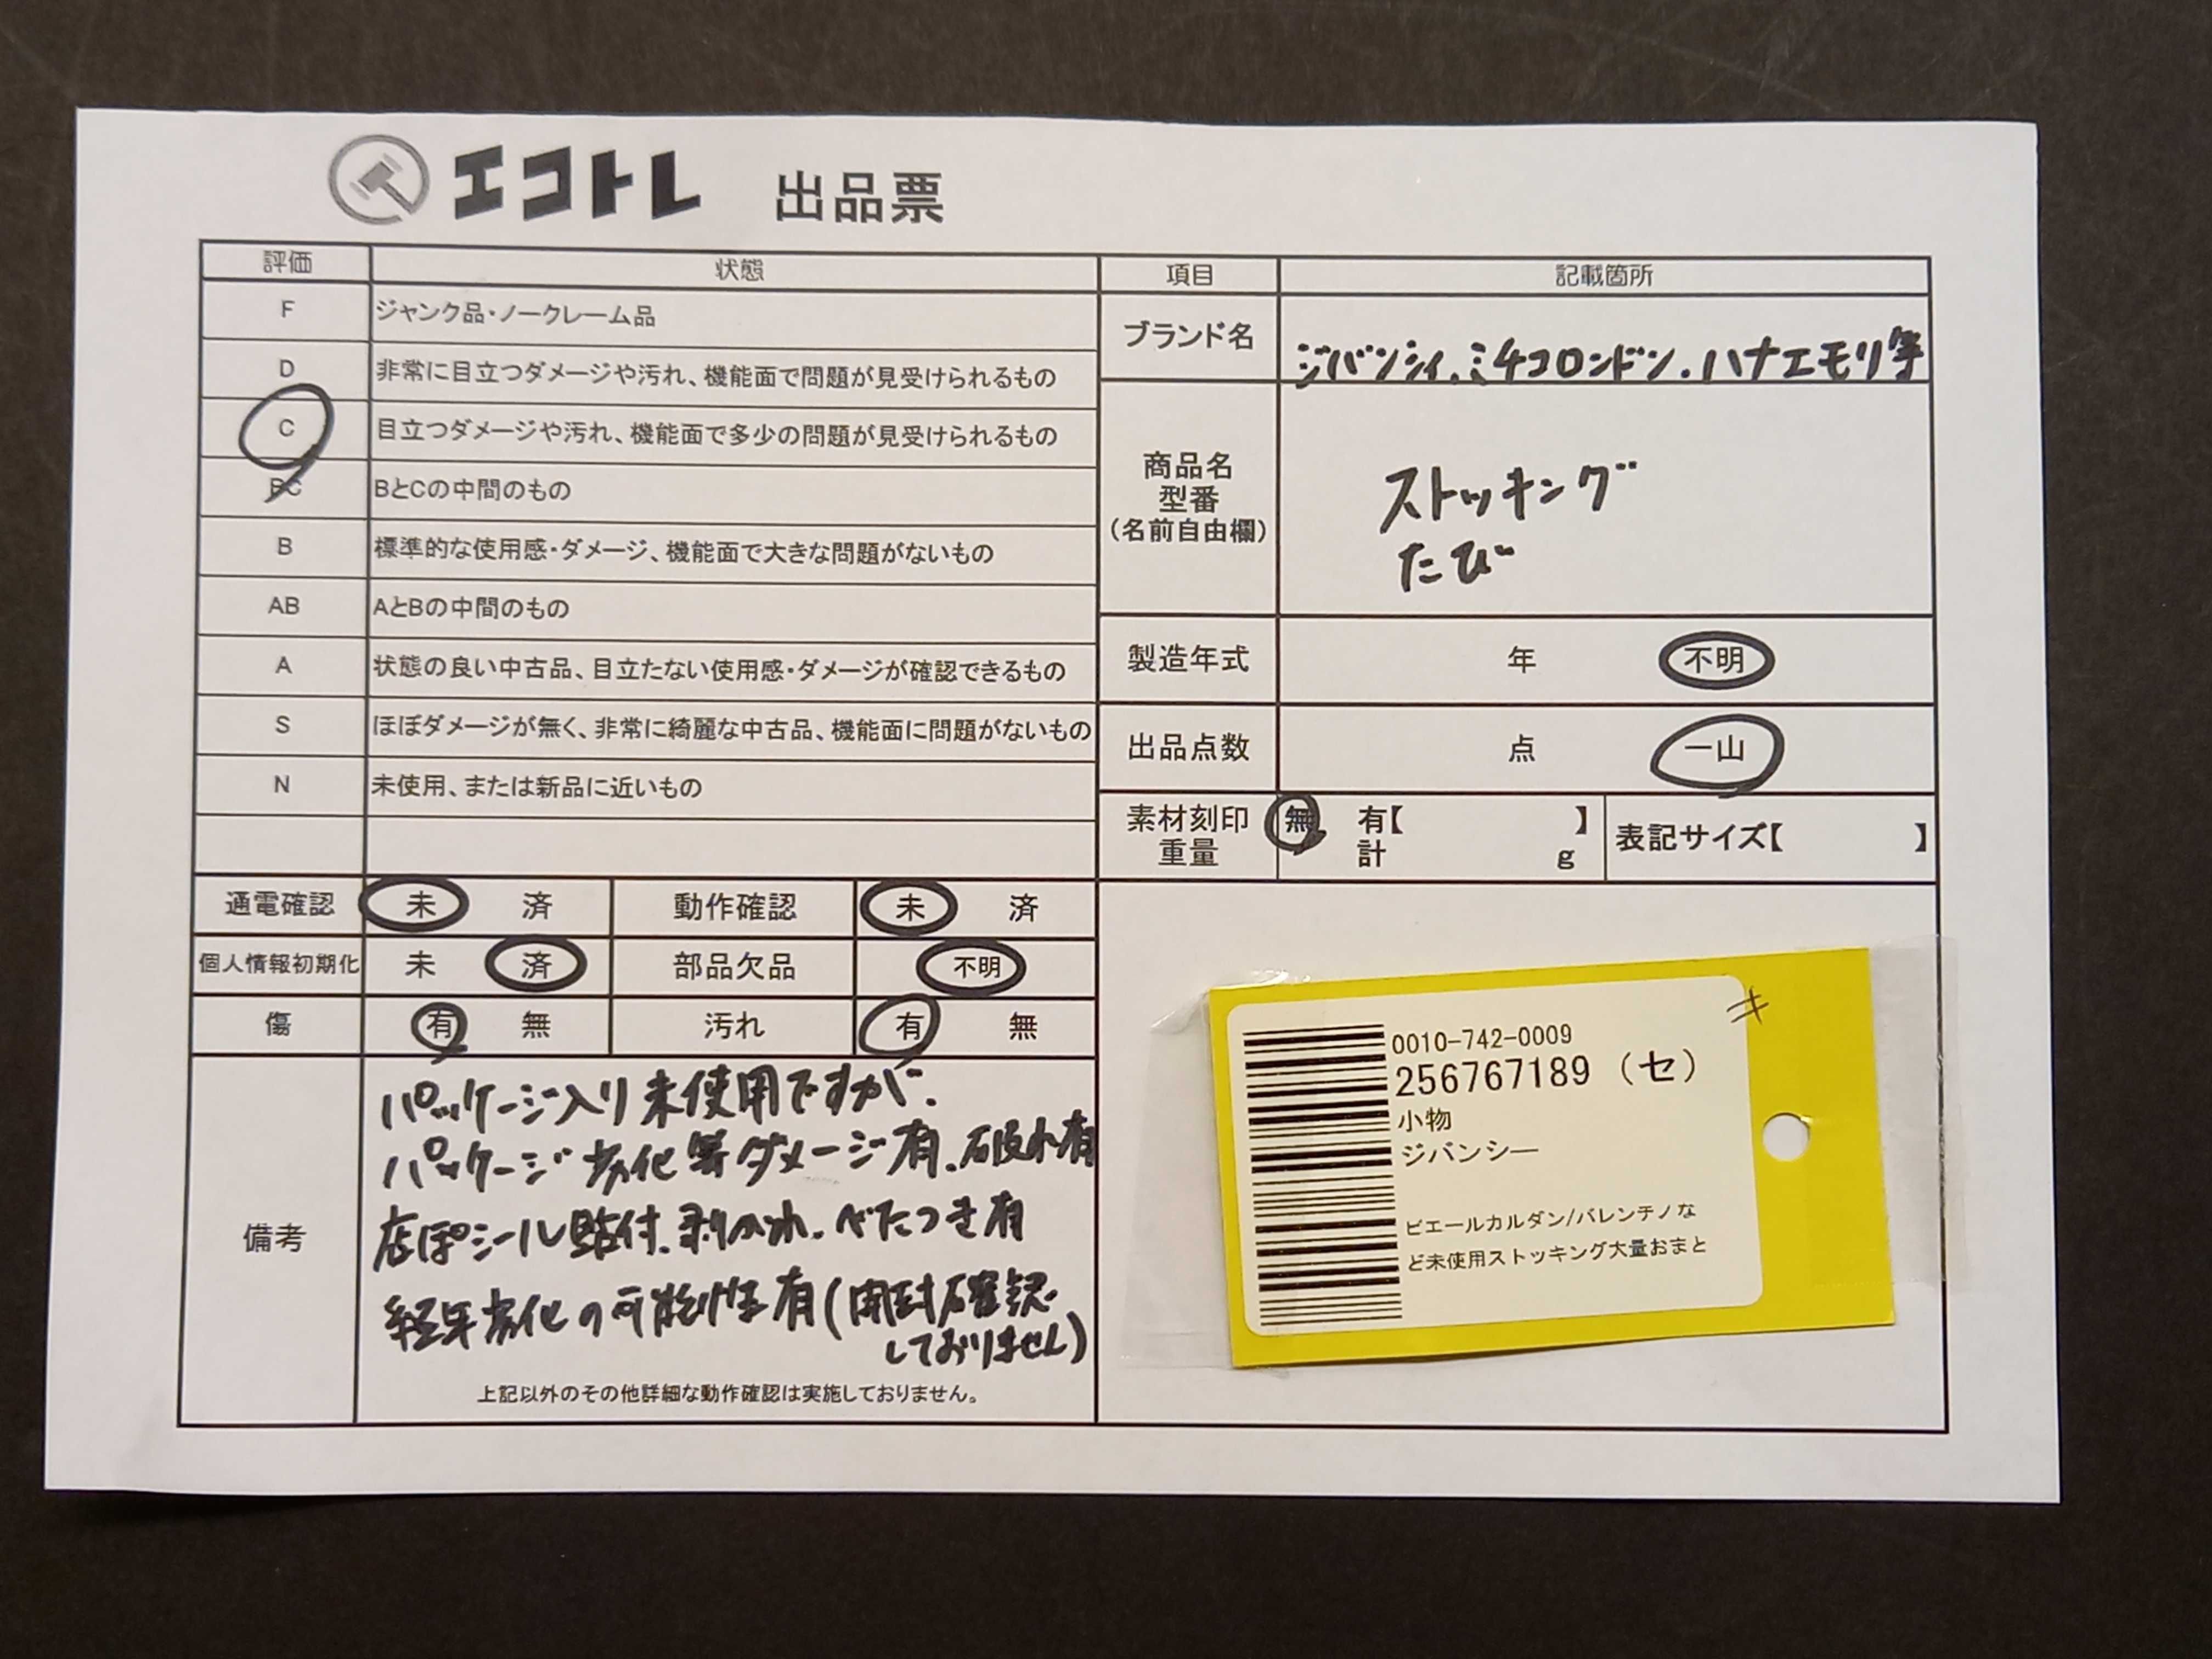 エコトレ 出品票
評価 状態
F ジャンク品・ノークレーム品
D 非常に目立つダメージや汚れ、機能面で問題が見受けられるもの
C 目立つダメージや汚れ、機能面で多少の問題が見受けられるもの
BC BとCの中間のもの
B 標準的な使用感・ダメージ、機能面で大きな問題がないもの
AB AとBの中間のもの
A 状態の良い中古品、目立たない使用感・ダメージが確認できるもの
S ほぼダメージが無く、非常に綺麗な中古品、機能面に問題がないもの
N 未使用、または新品に近いもの
通電確認 未 済 動作確認 未 済
個人情報初期化 未 済 部品欠品 不明
傷 有 無 汚れ 有 無
備考
パッケージ入り未使用ですが、
パッケージ劣化等ダメージ有、破れ有
店ぽシール貼付、剥がれ、べたつき有
経年劣化の可能性有(開封確認
しておりません)
上記以外のその他詳細な動作確認は実施しておりません。
項目 記載箇所
ブランド名 ジバンシィ、ミチコロンドン、ハナエモリ等
商品名
型番
(名前自由欄)
ストッキング
たび
製造年式 年 不明
出品点数 点 一山
素材刻印 無 有【 】
重量 計 g
表記サイズ【 】
0010-742-0009
256767189 (セ)
小物
ジバンシー
ピエールカルダン/バレンチノな
ど未使用ストッキング大量おまと
キ